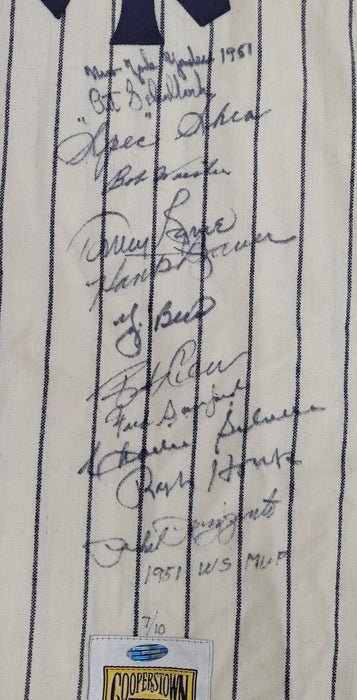 New York Yankees 1951
Art Schallock
"Spec" Shea
Bob Wiesler
Tommy Byrne
Hank Bauer
Yogi Berra
Bob Cerv
Fred Sanford
Charlie Silvera
Ralph Houk
1951 WS MVP
7/10
COOPERSTOWN